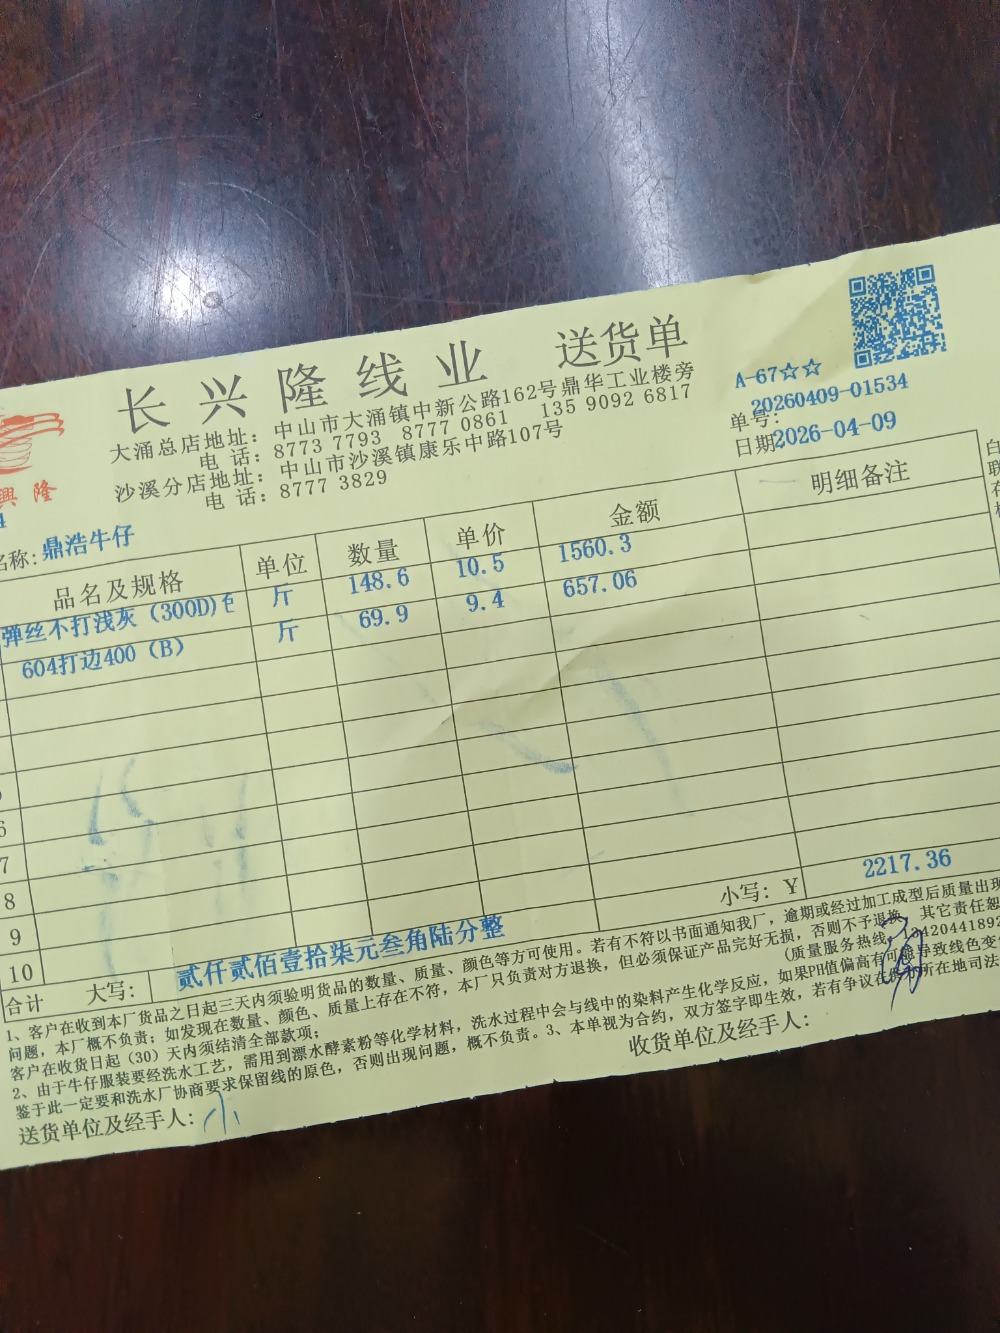 长兴隆线业 送货单
A-67☆☆
大涌总店地址：中山市大涌镇中新公路162号鼎华工业楼旁
电 话：8773 7793 8777 0861 135 9092 6817
沙溪分店地址：中山市沙溪镇康乐中路107号
电 话：8777 3829
單号：20260409-01534
日期 2026-04-09
興隆
名称：鼎浩牛仔
品名及规格 单位 数量 单价 金额 明细备注
弹丝不打浅灰（300D)色 斤 148.6 10.5 1560.3
604打边400（B） 斤 69.9 9.4 657.06
6
7
8
9
10
小写：¥ 2217.36
合计 大写： 贰仟贰佰壹拾柒元叁角陆分整
1、客户在收到本厂货品之日起三天内须验明货品的数量、质量、颜色等方可使用。若有不符以书面通知我厂，逾期或经过加工成型后质量出现
问题，本厂概不负责；如发现在数量、颜色、质量上存在不符，本厂只负责对方退换，但必须保证产品完好无损，否则不予退换，其它责任恕
客户在收货日起（30）天内须结清全部款项；
(质量服务热线
2、由于牛仔服装要经洗水工艺，需用到漂水酵素粉等化学材料，洗水过程中会与线中的染料产生化学反应，如果PH值偏高有可能导致线色变
鉴于此一定要和洗水厂协商要求保留线的原色，否则出现问题，概不负责。3、本单视为合约，双方签字即生效，若有争议在供方所在地司法
送货单位及经手人：小
收货单位及经手人：